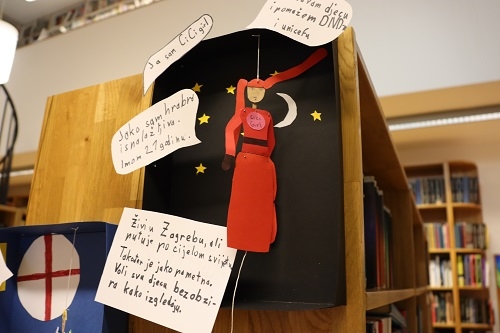 Ja sam CiCigirl
djecu
i pomažem DND
i unicefu
Jako sam hrabra
i snalažljiva.
Imam 21 godinu.
Živi u Zagrebu, ali
putuje po cijelom svijetu
Također je jako pametna.
Voli svu djecu bez obzi-
ra kako izgledaju.